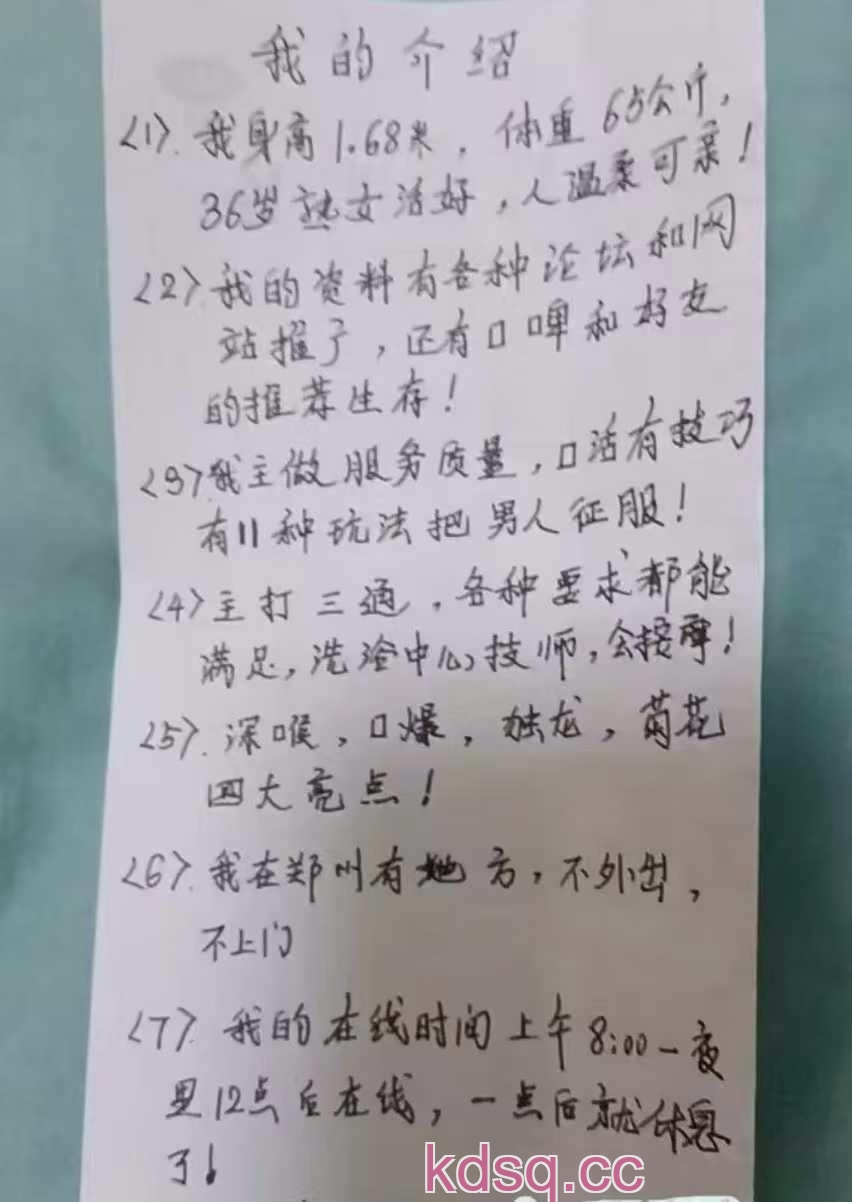 我的介绍
<1>.我身高1.68米，体重65公斤，
36岁熟女活好，人温柔可亲！
<2>我的资料有各种论坛和网
站推了，还有口啤和好友
的推荐生存！
<3>我主做服务质量，口活有技巧
有11种玩法把男人征服！
<4>主打三通，各种要求都能
满足，洗浴中心技师，会按摩！
<5>.深喉，口爆，独龙，菊花
四大亮点！
<6>.我在郑州有地方，不外出，
不上门
<7>.我的在线时间上午8:00-夜
里12点后在线，一点后就休息
了！
kdsq.cc